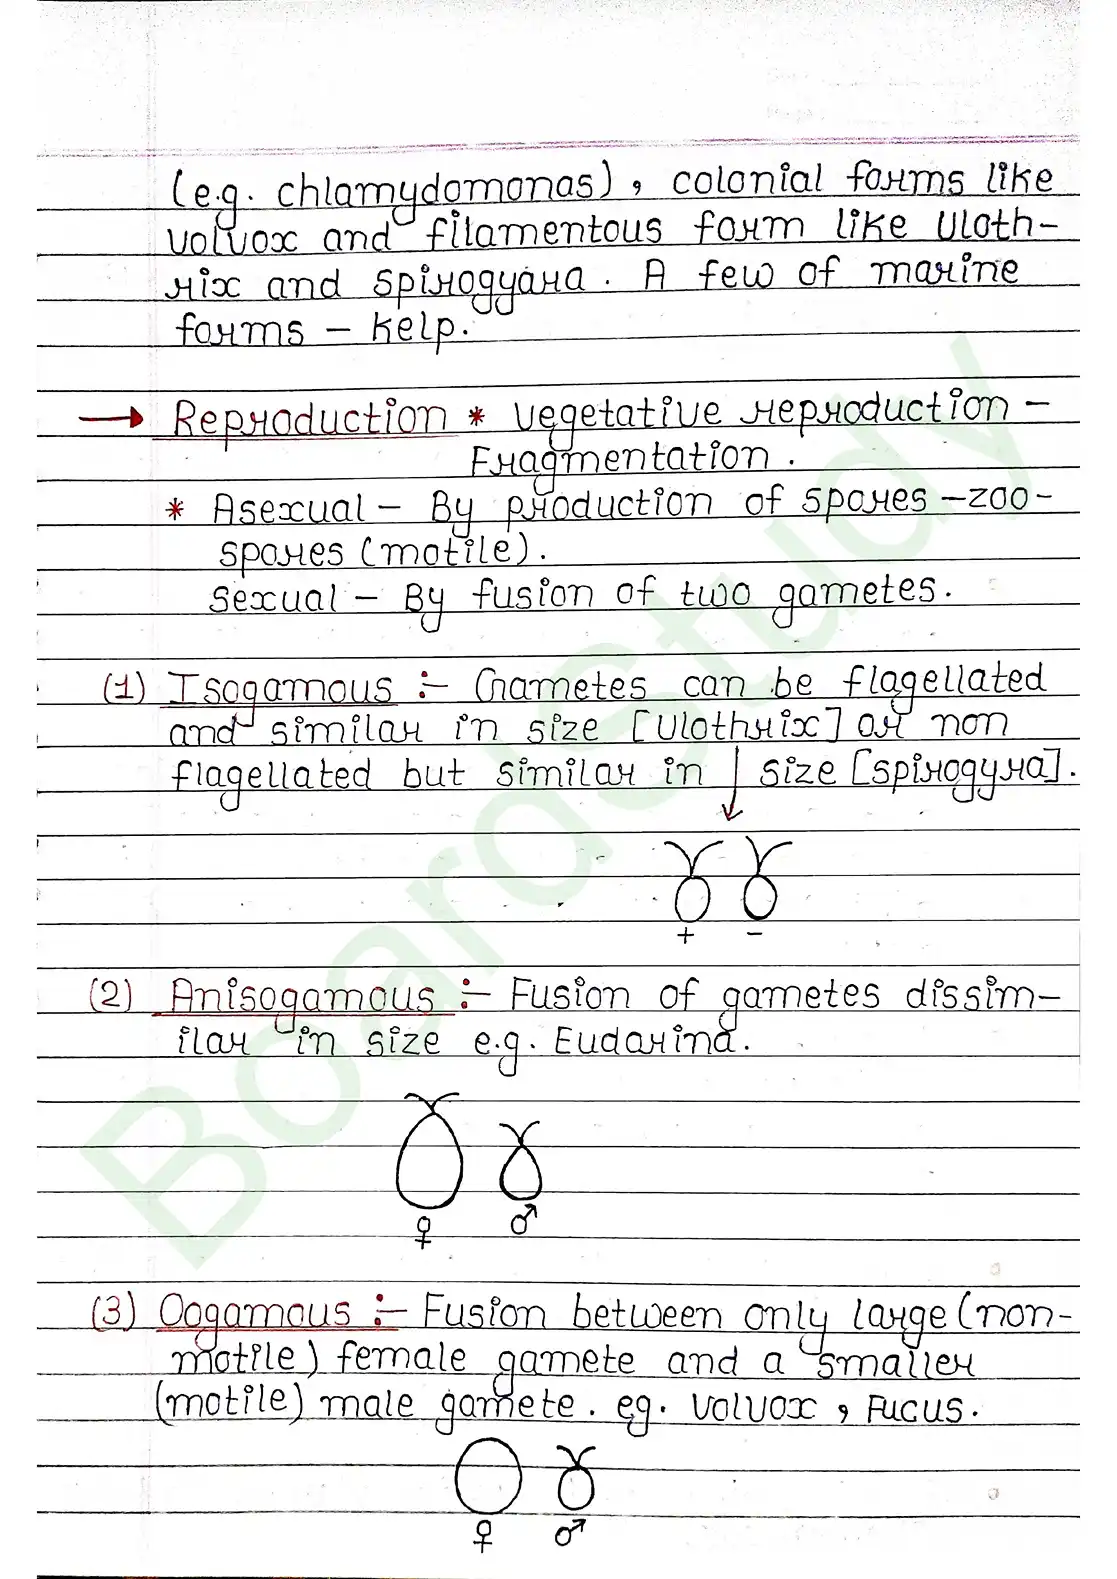 (e.g. chlamydomonas), colonial forms like
volvox and filamentous form like Uloth-
rix and spirogyara. A few of marine
forms – kelp.
→ Reproduction * Vegetative reproduction –
Fragmentation.
* Asexual – By production of spores – zoo-
spores (motile).
Sexual – By fusion of two gametes.
(1) Isogamous :– Gametes can be flagellated
and similar in size [Ulothrix] or non
flagellated but similar in size [spirogyra].
+ –
(2) Anisogamous :– Fusion of gametes dissim-
ilar in size e.g. Eudorina.
♀ ♂
(3) Oogamous :– Fusion between only large (non-
motile) female gamete and a smaller
(motile) male gamete. eg. Volvox, Fucus.
♀ ♂
BoardStudy